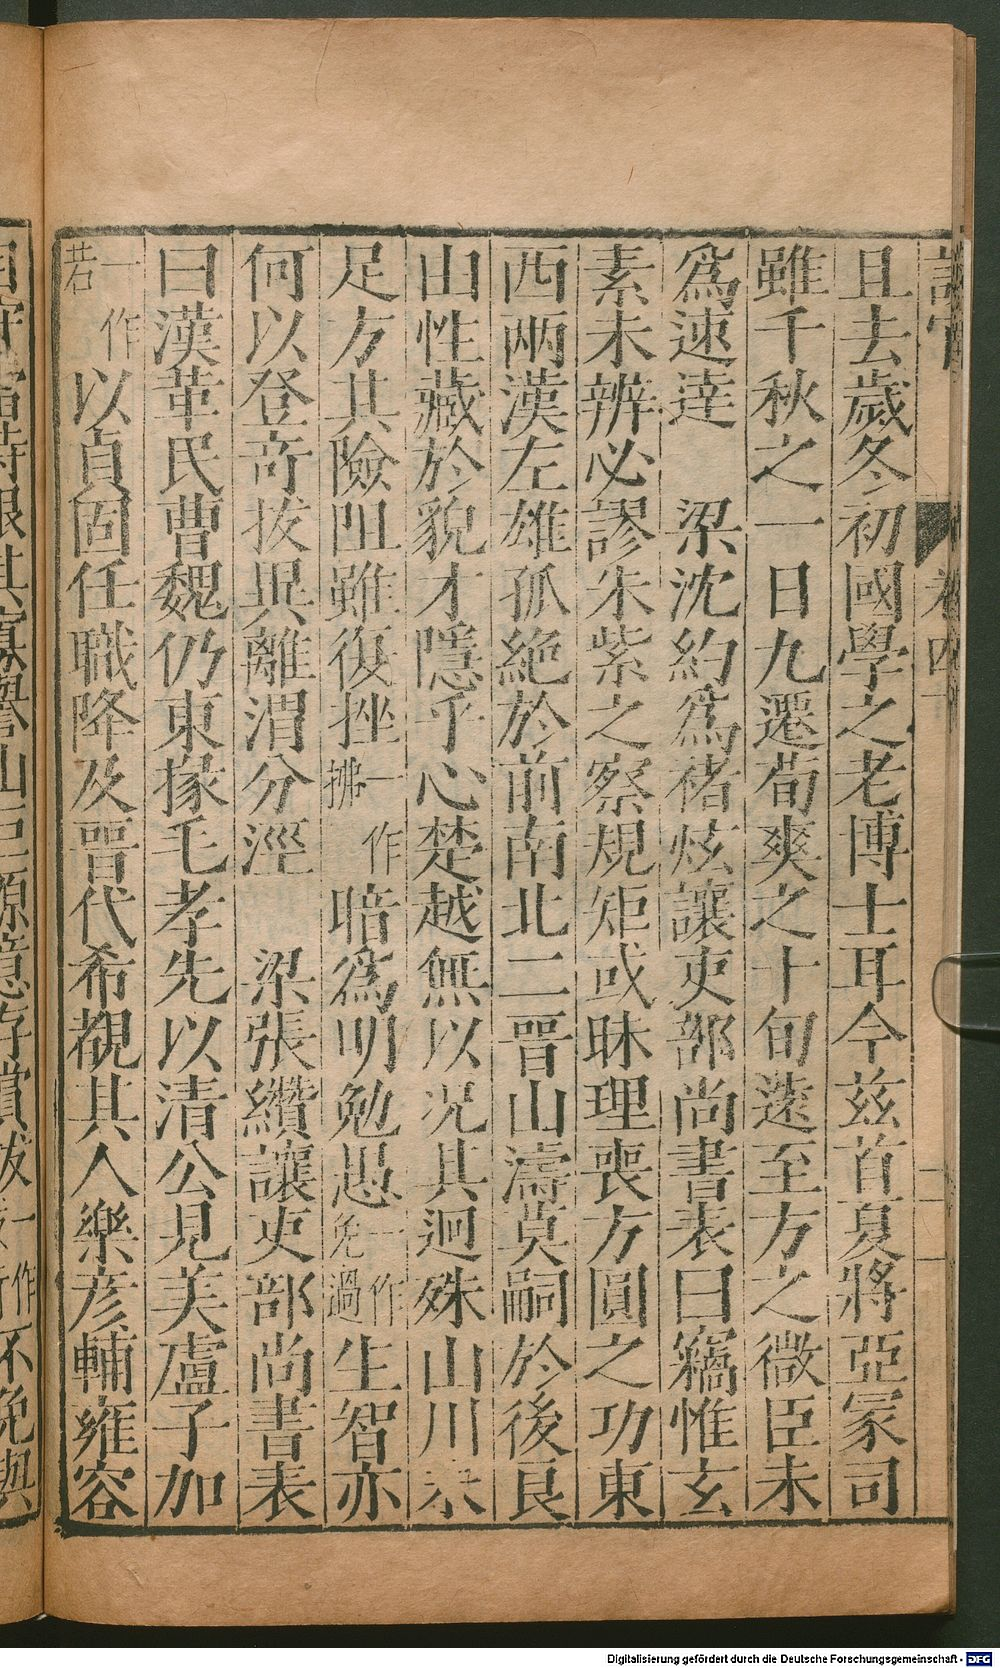 且去歲冬初國學之老博士耳今茲首夏將亞冢司
雖千秋之一日九遷荀爽之十旬遠至方之微臣未
爲速達　梁沈約爲褚炫讓吏部尚書表曰竊惟玄
素未辨必謬朱紫之察規矩或昧理喪方圓之功東
西兩漢左雄孤絶於前南北二晉山濤莫嗣於後良
山性藏於貌才隱乎心楚越無以况其迥殊山川
足方其險阻雖復挫一作拂暗爲明勉愚一作免過生智亦
何以登奇拔異離渭分涇　梁張纘讓吏部尚書表
曰漢革民曹魏仍東掾毛孝先以清公見美盧子加
一作若以貞固任職降及晉代希覩其人樂彦輔雍容
卷四
一作
不免與
Digitalisierung gefördert durch die Deutsche Forschungsgemeinschaft - DFG